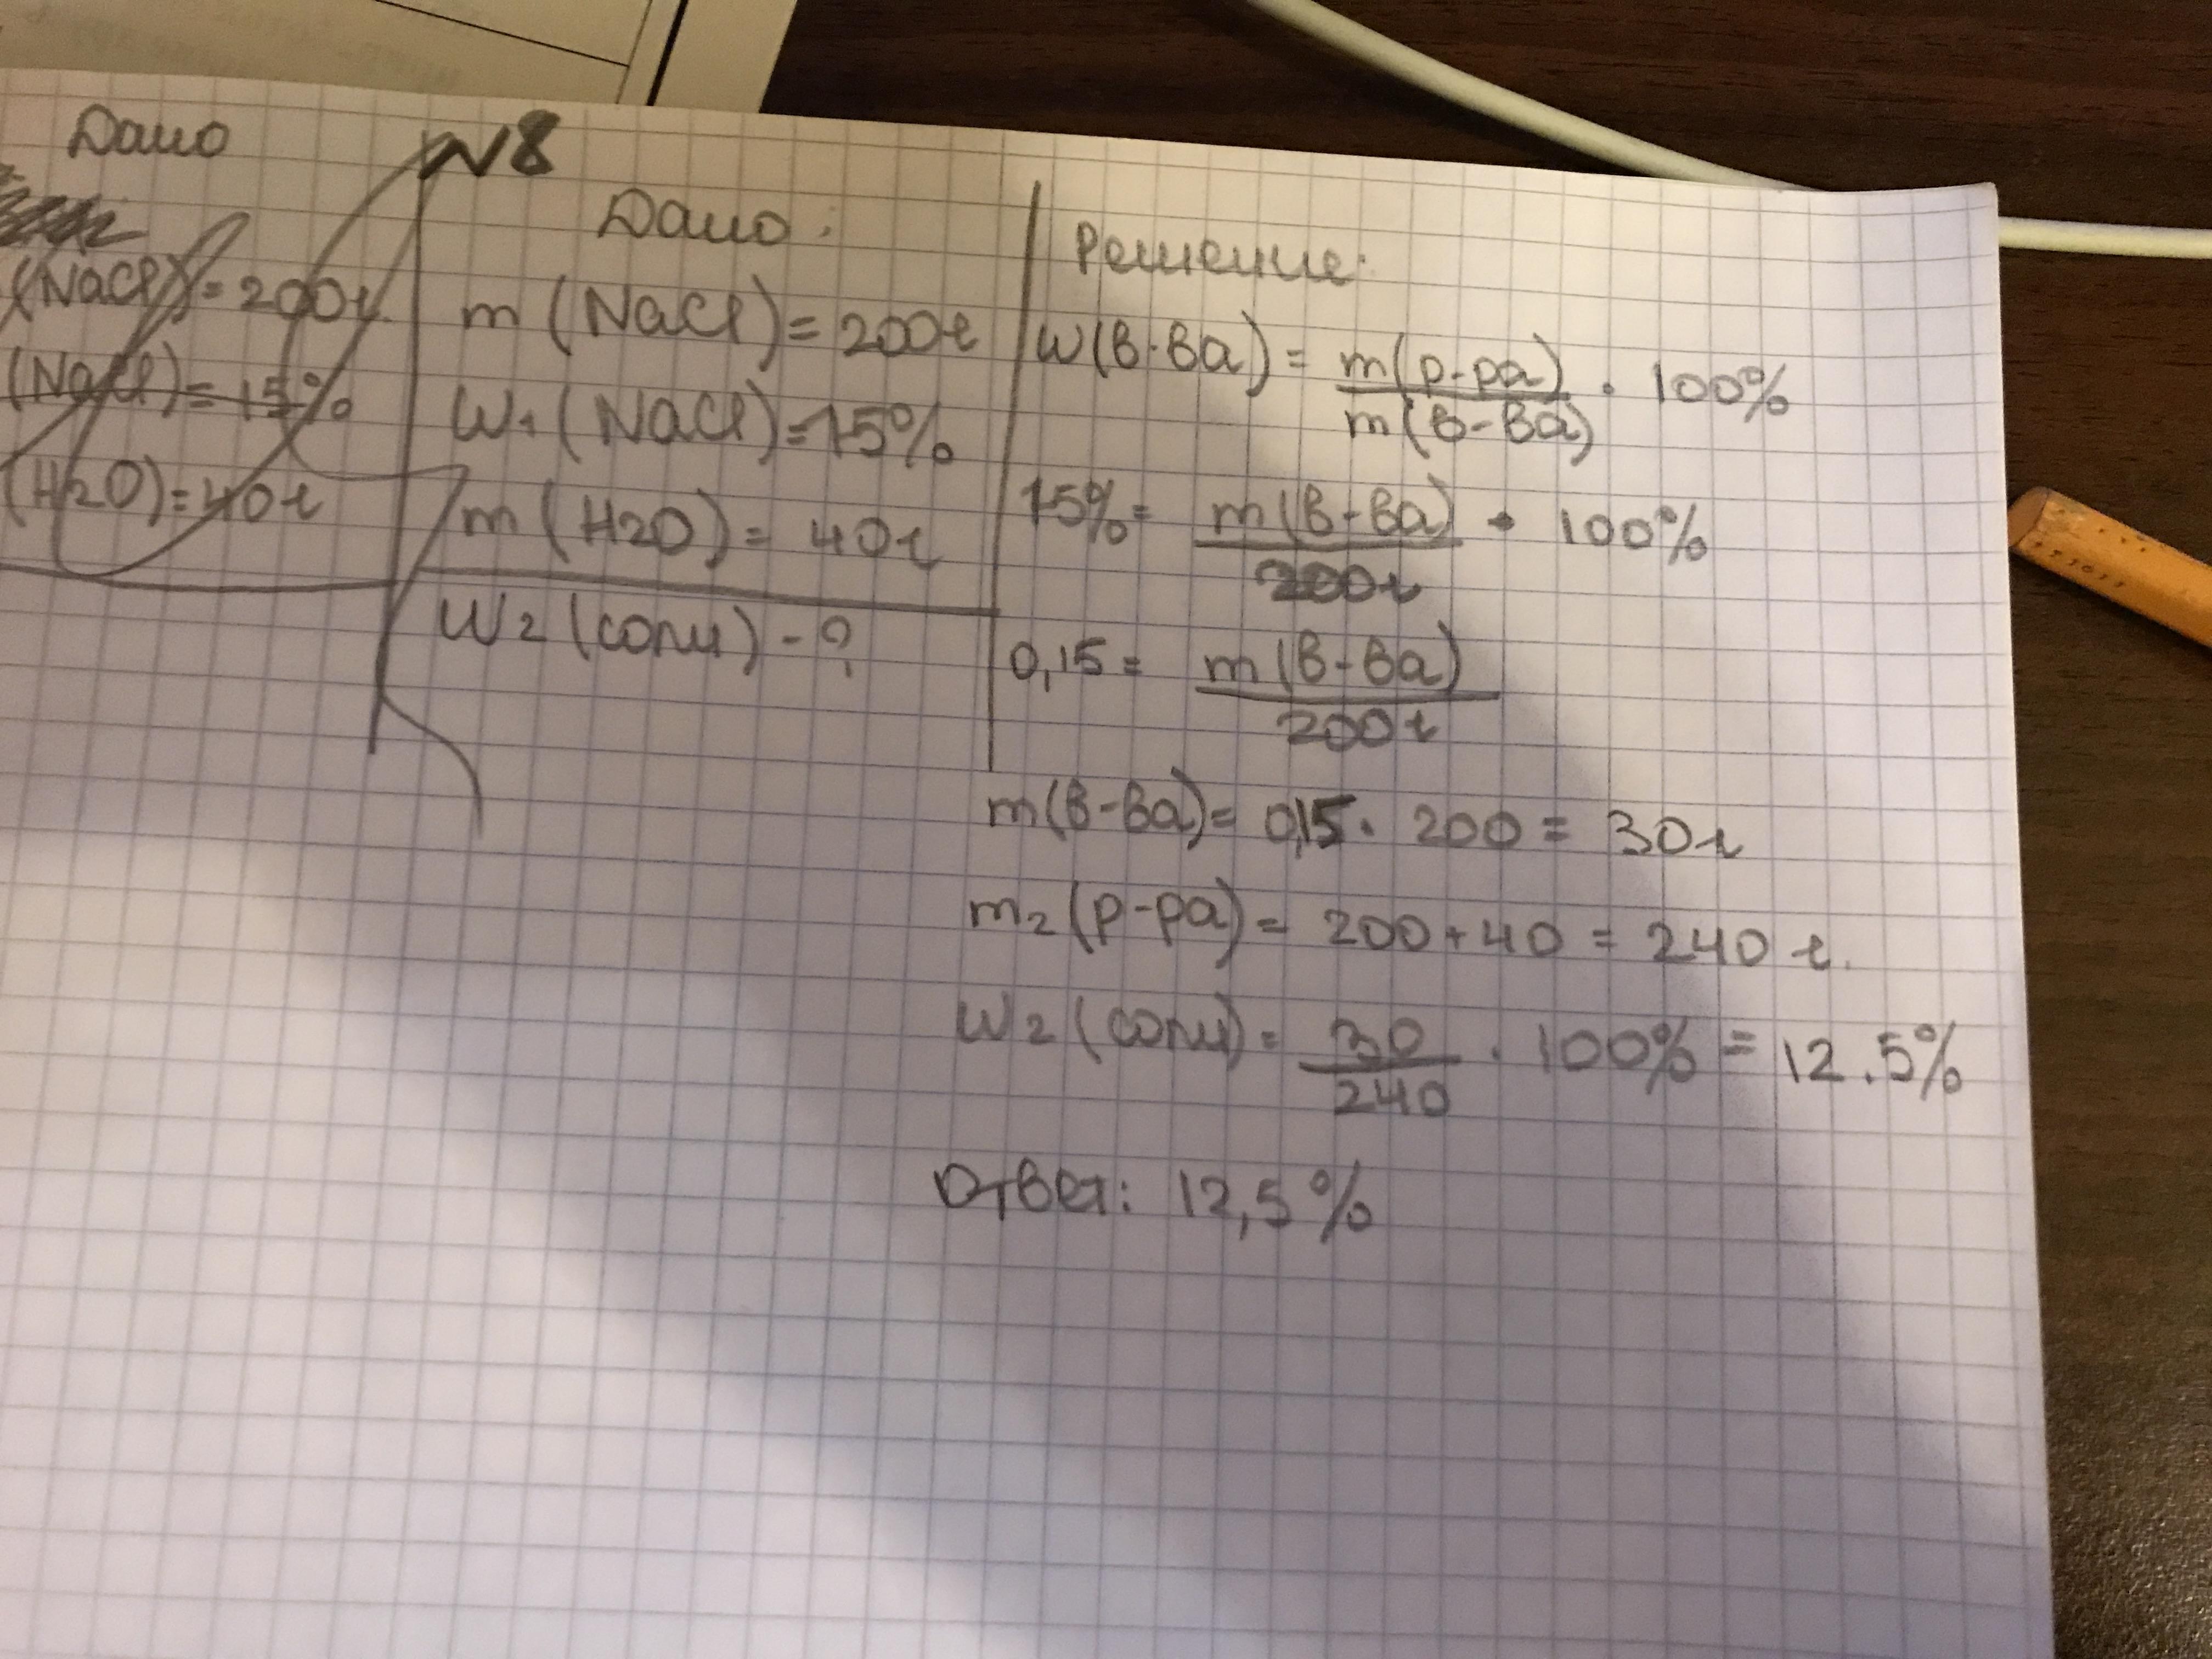 Дано
(NaCl) = 200г
(NaCl) = 15%
(H2O) = 40г
N8
Дано:
m (NaCl) = 200г
W1 (NaCl) = 15%
m (H2O) = 40г
W2 (соли) - ?
Решение:
W(в-ва) = m(р-ра) / m(в-ва) · 100%
15% = m(в-ва) / 200г · 100%
0,15 = m(в-ва) / 200г
m(в-ва) = 0,15 · 200 = 30г
m2 (р-ра) = 200 + 40 = 240 г.
W2 (соли) = 30 / 240 · 100% = 12.5%
Ответ: 12,5%